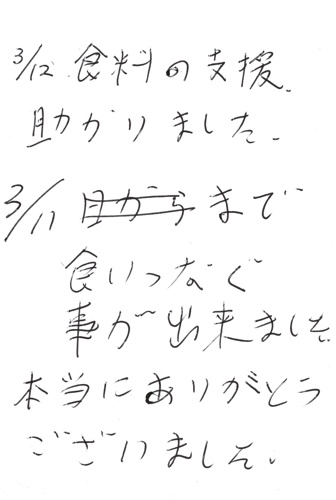 3/12 食料の支援、
助かりました。
3/11 まで
食いつなぐ
事が出来ました
本当にありがとう
ございました。